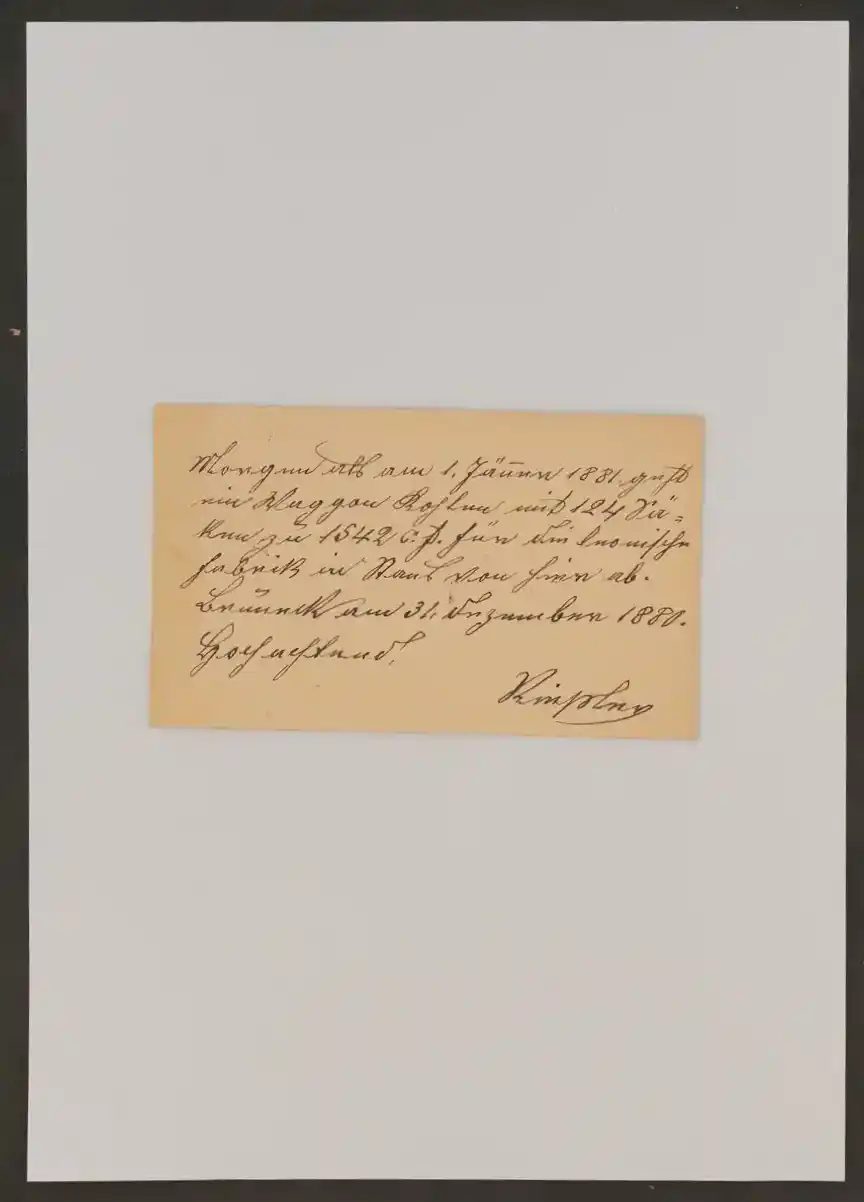 Morgen als am 1. Jänner 1881. geht
ein Waggon Kohlen mit 124 Sä=
ken zu 1542 c. f. für die leonische
Fabrik in Stans von hier ab.
Bruneck am 31. Dezember 1880.
Hochachtend!